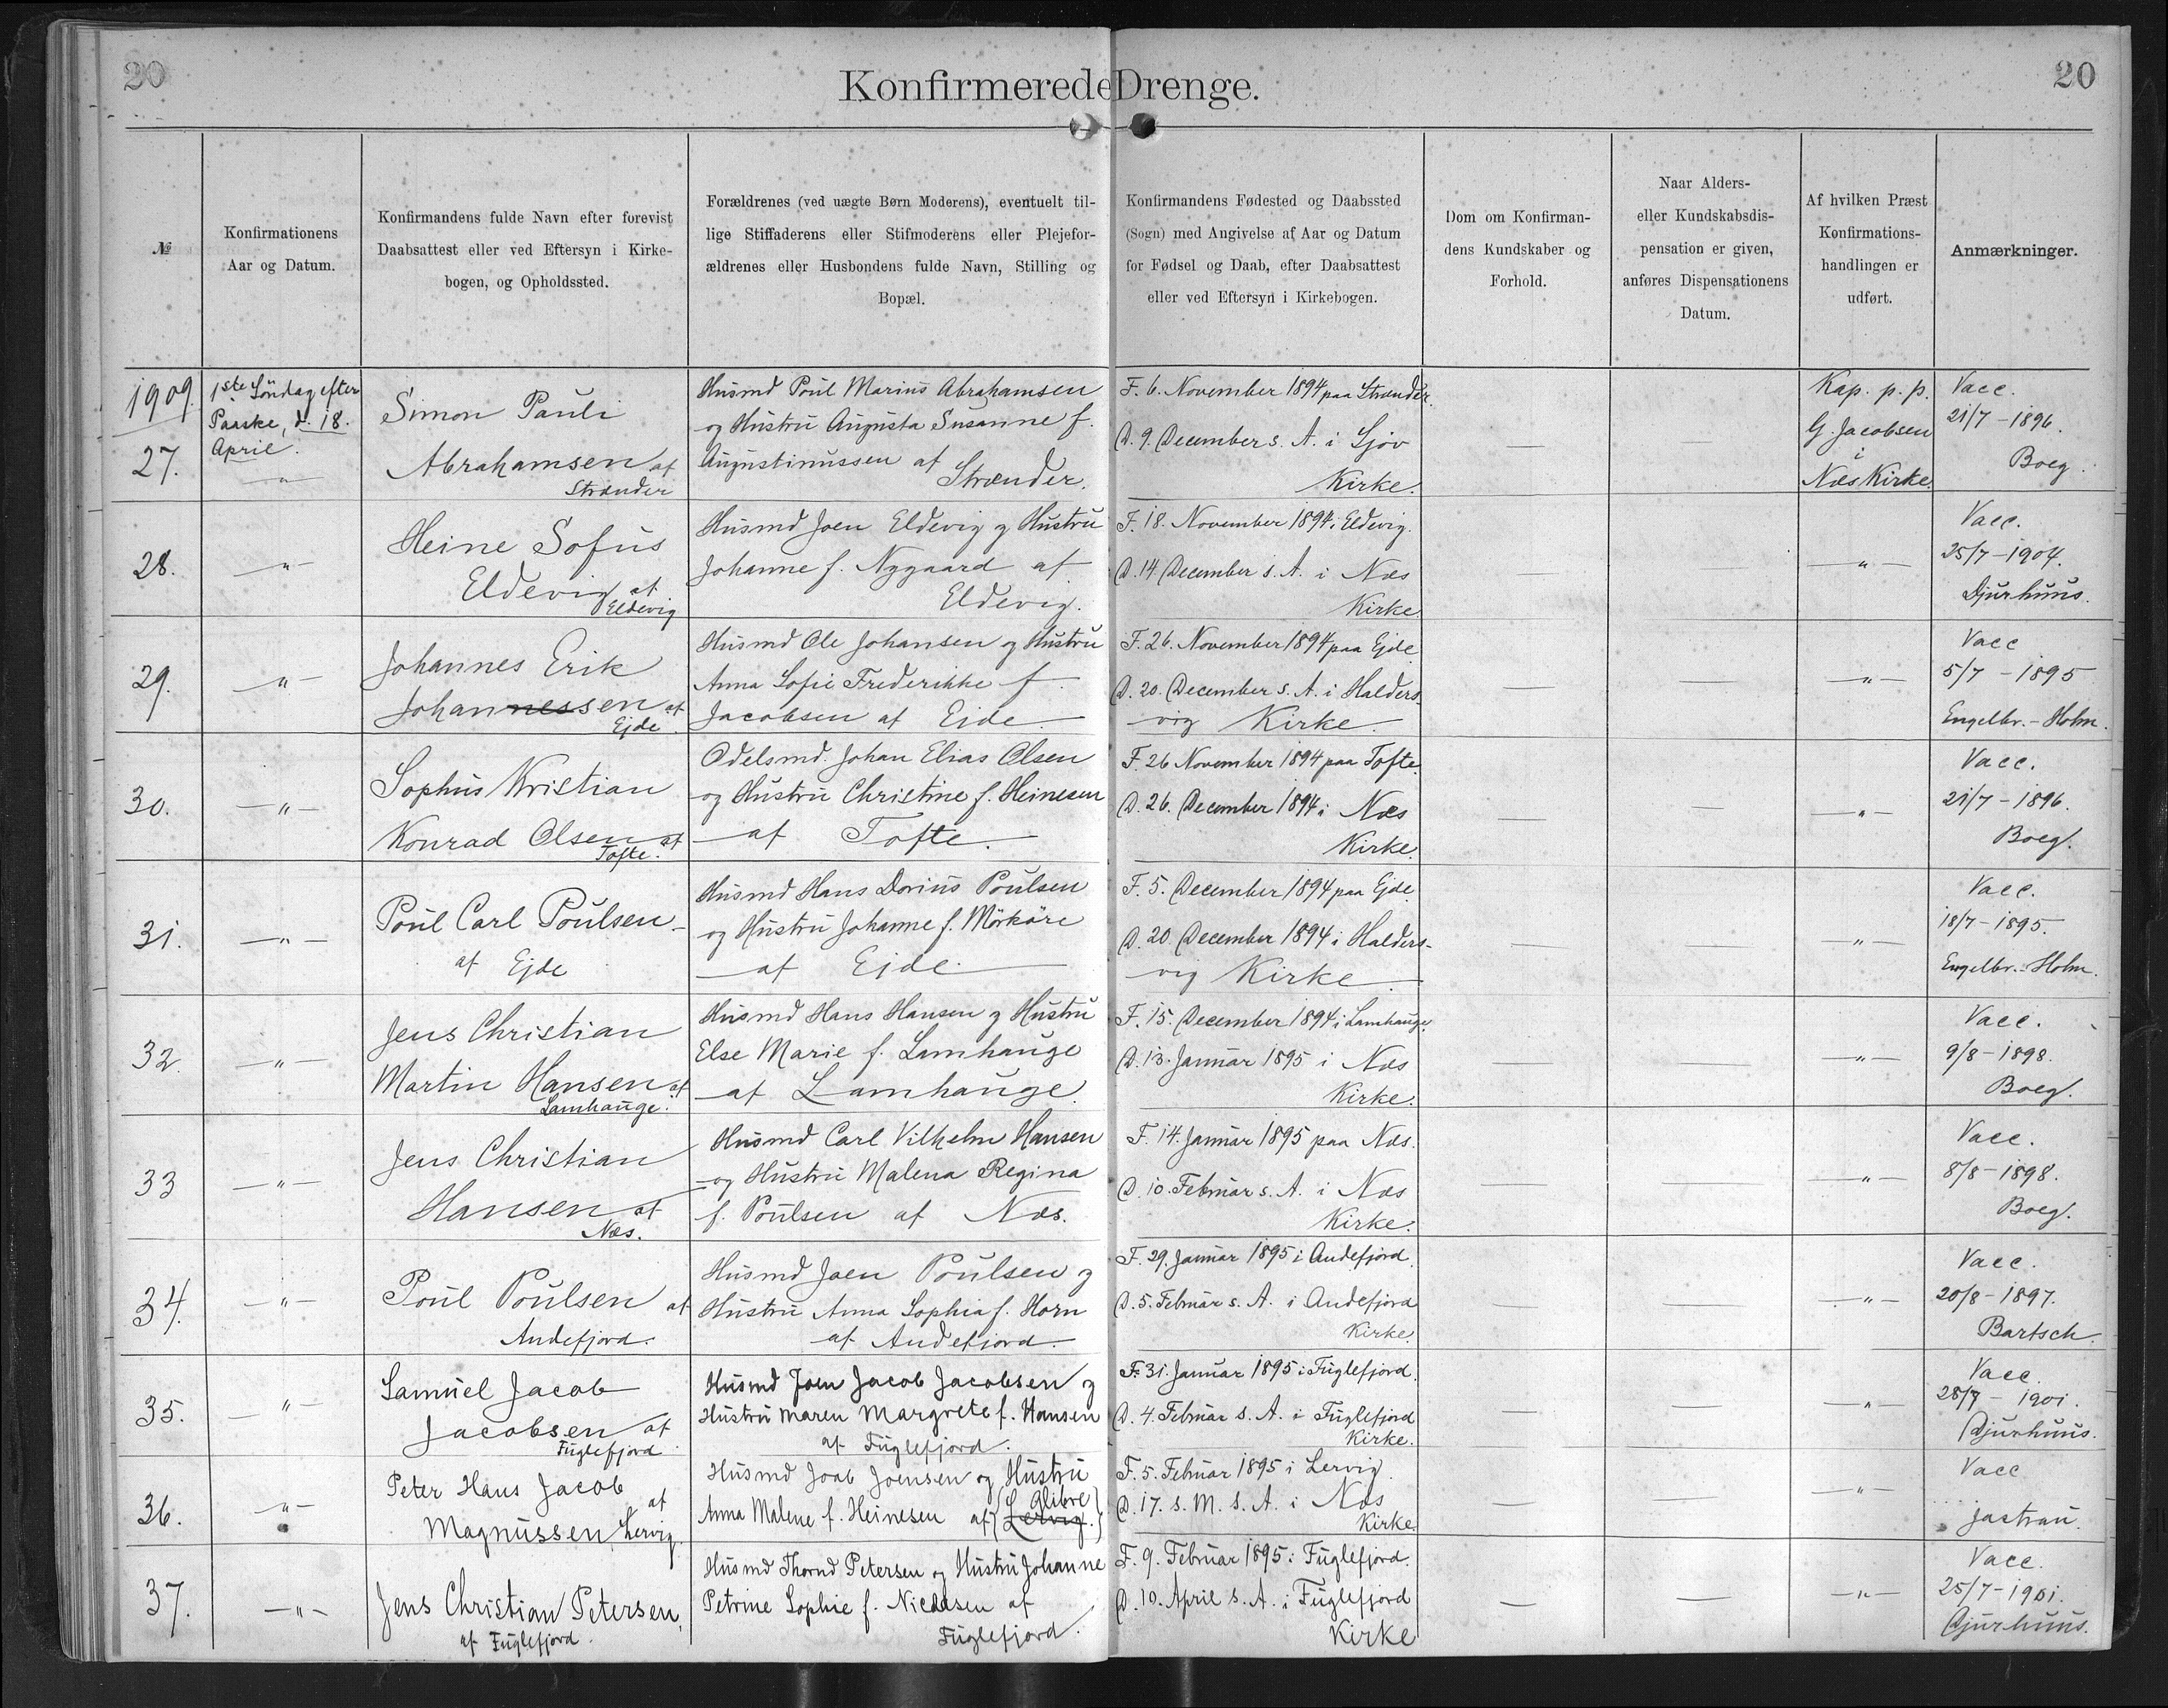 20
Konfirmerede Drenge.
20
№
Konfirmationens
Aar og Datum.
Konfirmandens fulde Navn efter forevist
Daabsattest eller ved Eftersyn i Kirke-
bogen, og Opholdssted.
Forældrenes (ved uægte Børn Moderens), eventuelt til-
lige Stiffaderens eller Stifmoderens eller Plejefor-
ældrenes eller Husbondens fulde Navn, Stilling og
Bopæl.
Konfirmandens Fødested og Daabssted
(Sogn) med Angivelse af Aar og Datum
for Fødsel og Daab, efter Daabsattest
eller ved Eftersyn i Kirkebogen.
Dom om Konfirman-
dens Kundskaber og
Forhold.
Naar Alders-
eller Kundskabsdis-
pensation er given,
anføres Dispensationens
Datum.
Af hvilken Præst
Konfirmations-
handlingen er
udført.
Anmærkninger.
1909.
27.
1ste Söndag efter
Paaske, d. 18.
April.
— " —
Simon Pauli
Abrahamsen af
Strænder
Husmd Poul Marius Abrahamsen
og Hustru Augusta Susanne f.
Augustinussen af
Strænder.
F. 6. November 1894 paa Strænder.
D. 9. December s. A. i Sjöv
Kirke.
—
Kap. p. p.
G. Jacobsen
i
Næs Kirke.
Vacc.
21/7 - 1896.
Boeg.
28.
— " —
Heine Sofus
Eldevig af
Eldevig
Husmd Joen Eldevig og Hustru
Johanne f. Nygaard af
Eldevig.
F. 18. November 1894 i Eldevig.
D. 14 December s. A. i Næs
Kirke.
—
—
— " —
Vacc.
25/7 - 1904.
Djurhuus.
29.
— " —
Johannes Erik
Johannessen af
Ejde.
Husmd Ole Johansen og Hustru
Anna Sofie Frederikke f.
Jacobsen af Eide.
F. 26. November 1894 paa Ejde.
D. 20. December s. A. i Halders-
vig Kirke.
—
—
— " —
Vacc
5/7 - 1895
Engelbr. - Holm.
30.
— " —
Sophus Kristian
Konrad Olsen af
Tofte.
Odelsmd. Johan Elias Olsen
og Hustru Christine f. Heinesen
af Tofte.
F. 26 November 1894 paa Tofte.
D. 26. December 1894 i Næs
Kirke.
—
—
— " —
Vacc.
21/7 - 1896.
Boeg.
31.
— " —
Poul Carl Poulsen
af Ejde
Husmd Hans Dorius Poulsen
og Hustru Johanne f. Mörköre
af Ejde.
F. 5. December 1894 paa Ejde.
D. 20 December 1894 i Halders-
vig Kirke.
—
—
— " —
Vacc.
18/7 - 1895.
Engelbr. - Holm.
32.
— " —
Jens Christian
Martin Hansen af
Lamhauge.
Husmd Hans Hansen og Hustru
Else Marie f. Lamhauge
af Lamhauge
F. 15. December 1894 i Lamhauge.
D. 13. Januar 1895 i Næs
Kirke.
—
—
— " —
Vacc.
9/8 - 1898.
Boeg.
33
— " —
Jens Christian
Hansen af
Næs.
Husmd Carl Vilhelm Hansen
og Hustru Malena Regina
f. Poulsen af Næs.
F. 14. Januar 1895 paa Næs.
D. 10. Februar s. A. i Næs
Kirke.
—
—
— " —
Vacc.
8/8 - 1898.
Boeg.
34.
— " —
Poul Poulsen af
Andefjord.
Husmd Joen Poulsen og
Hustru Anna Sophia f. Horn
af Andefjord.
F. 29. Januar 1895 i Andefjord.
D. 5. Februar s. A. i Andefjord
Kirke.
—
—
— " —
Vacc.
20/8 - 1897.
Bartsch.
35.
— " —
Samuel Jacob
Jacobsen af
Fuglefjord.
Husmd Joen Jacob Jacobsen og
Hustru Maren Margrete f. Hansen
af Fuglefjord.
F. 31. Januar 1895 i Fuglefjord.
D. 4. Februar s. A. i Fuglefjord
Kirke.
—
—
— " —
Vacc.
28/7 - 1901.
Djurhuus.
36.
— " —
Peter Hans Jacob
Magnussen af Lervig.
Husmd Joab Joensen og Hustru
Anna Malene f. Heinesen af { Glibre Lervig. }
F. 5. Februar 1895 i Lervig.
D. 17. s. M. s. A. i Næs
Kirke
—
—
— " —
Vacc
Jastrau.
37.
— " —
Jens Christian Petersen,
af Fuglefjord.
Husmd Thornd Petersen og Hustru Johanne
Petrine Sophie f. Nielsen af
Fuglefjord.
F. 9. Februar 1895 i Fuglefjord.
D. 10. April s. A. i Fuglefjord
Kirke
—
—
— " —
Vacc.
25/7 - 1901.
Djurhuus.